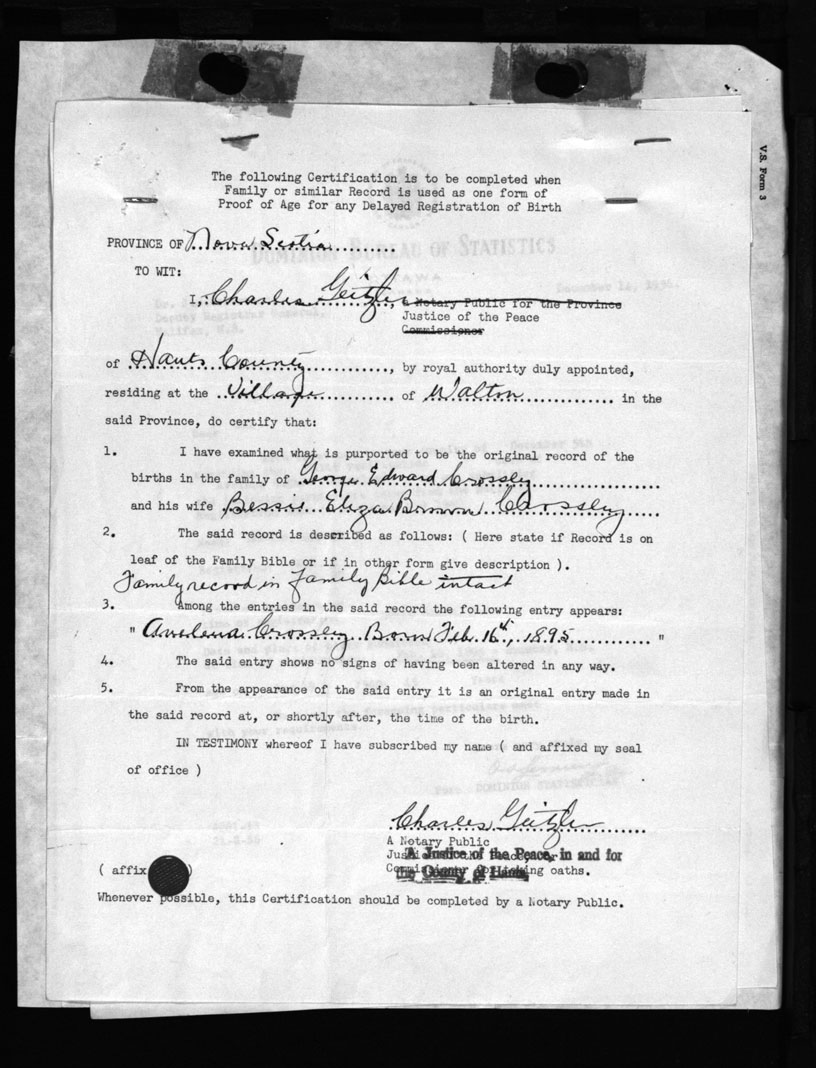 The following Certification is to be completed when
Family or similar Record is used as one form of
Proof of Age for any Delayed Registration of Birth
V.S. Form 3
PROVINCE OF Nova Scotia
DOMINION BUREAU OF STATISTICS
TO WIT:
I, Charles Geitzler, a Notary Public for the Province
Justice of the Peace
Commissioner
of Hants County, by royal authority duly appointed,
residing at the Village of Walton in the
said Province, do certify that:
1. I have examined what is purported to be the original record of the
births in the family of George Edward Crossley
and his wife Bessie Eliza Crossley
2. The said record is described as follows: ( Here state if Record is on
leaf of the Family Bible or if in other form give description ).
Family record in family Bible intact
3. Among the entries in the said record the following entry appears:
" Avelena Crossley Born Feb. 16th, 1895 "
4. The said entry shows no signs of having been altered in any way.
5. From the appearance of the said entry it is an original entry made in
the said record at, or shortly after, the time of the birth.
IN TESTIMONY whereof I have subscribed my name ( and affixed my seal
of office )
Charles Geitzler
A Notary Public
A Justice of the Peace, in and for
the County of Hants
( affix )
Whenever possible, this Certification should be completed by a Notary Public.